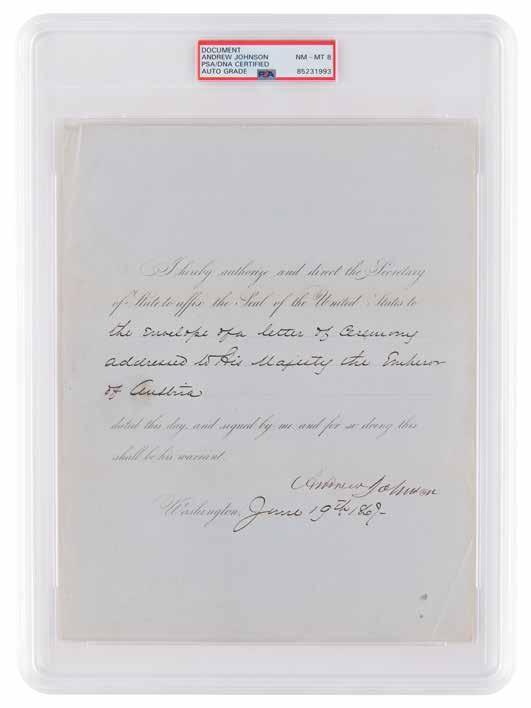 DOCUMENT
ANDREW JOHNSON NM - MT 8
PSA/DNA CERTIFIED
AUTO GRADE PSA 85231993
I hereby authorize and direct the Secretary
of State to affix the Seal of the United States to
the Envelope of a letter of Ceremony
addressed to His Majesty the Emperor
of Austria
dated this day, and signed by me and for so doing this
shall be his warrant.
Andrew Johnson
Washington, June 19th 1867.